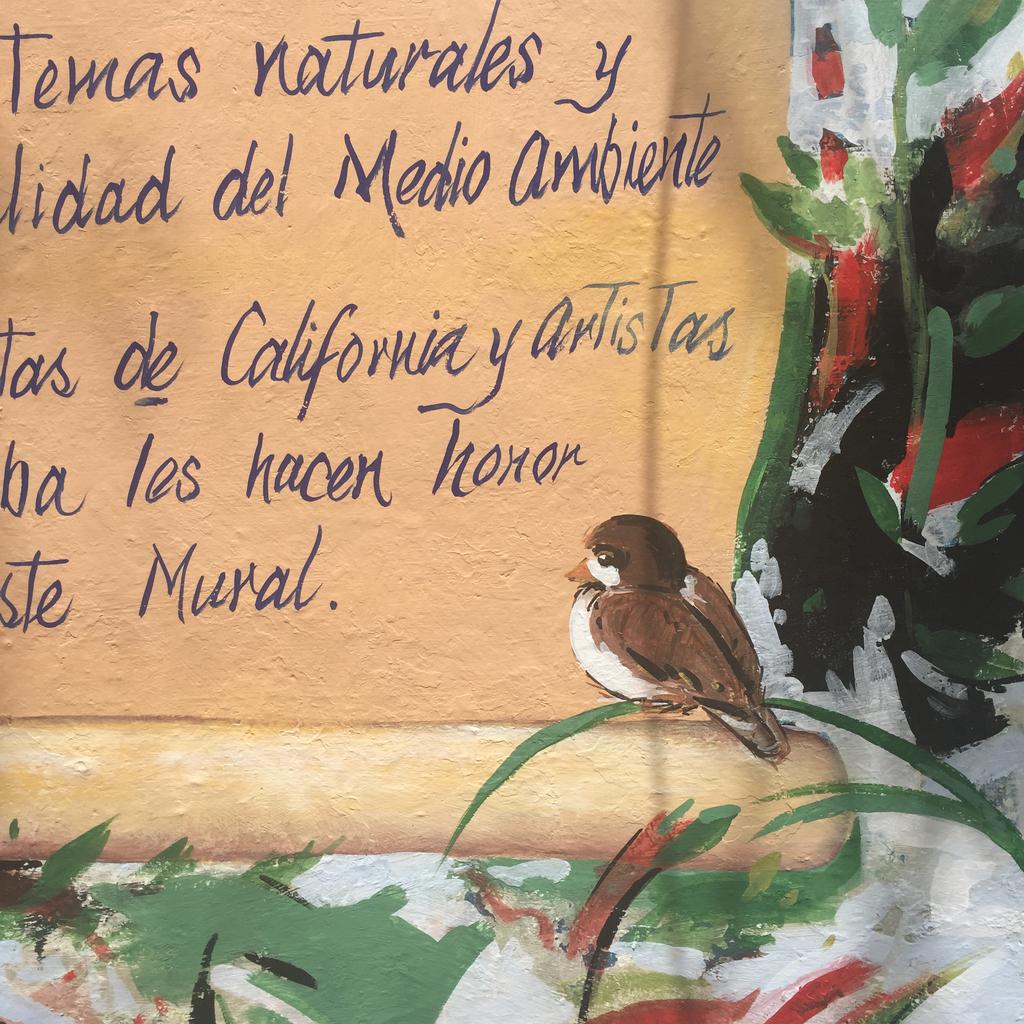 Temas naturales y
lidad del Medio Ambiente
tas de California y artistas
ba les hacen honor
ste Mural.